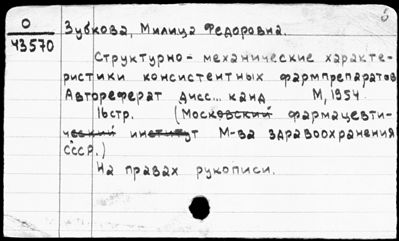 О
43570
Зубкова, Милица Федоровна.
Структурно-механические характе-
ристики консистентных фармпрепаратов
Автореферат дисс... канд М, 1954.
16стр. (Московский фармацевти-
ческий институт М-ва здравоохранения
СССР.)
На правах рукописи.